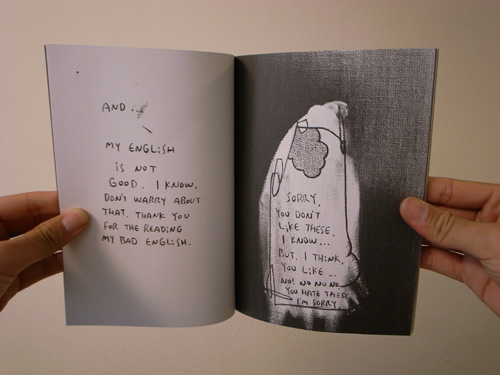 AND.
MY ENGLISH
IS NOT
GOOD. I KNOW.
DON'T WARRY ABOUT
THAT. THANK YOU
FOR THE READING
MY BAD ENGLISH.
SORRY.
YOU DON'T
LIKE THESE.
I KNOW...
BUT. I THINK.
YOU LIKE...
NO! NO NO NO.
YOU HATE THESE
I'M SORRY.